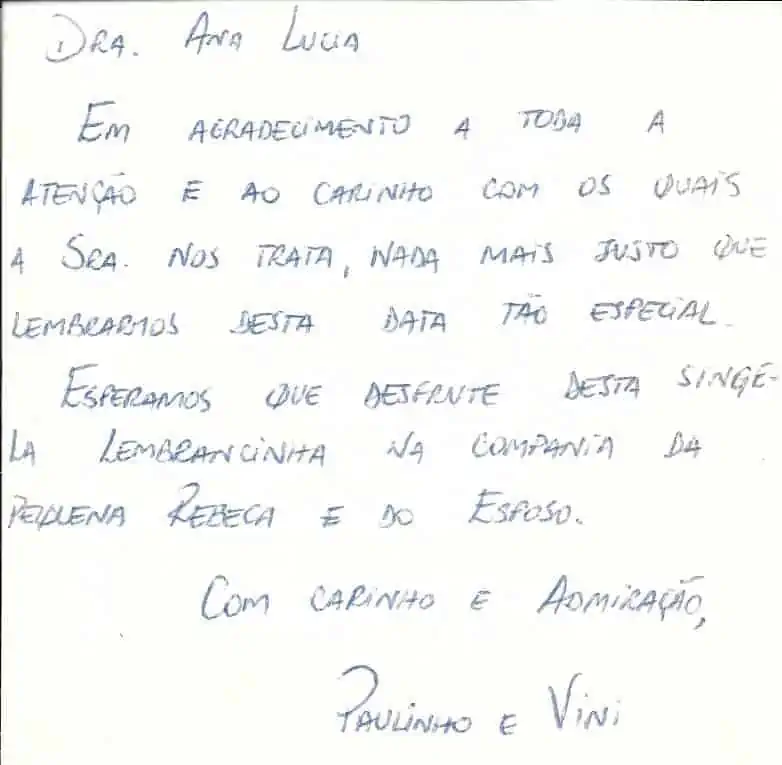 Dra. Ana Lucia
Em agradecimento a toda a
atenção e ao carinho com os quais
a Sra. nos trata, nada mais justo que
lembrarmos desta data tão especial.
Esperamos que desfrute desta singe-
la lembrancinha na compania da
pequena Rebeca e do Esposo.
Com carinho e Admiração,
Paulinho e Vini